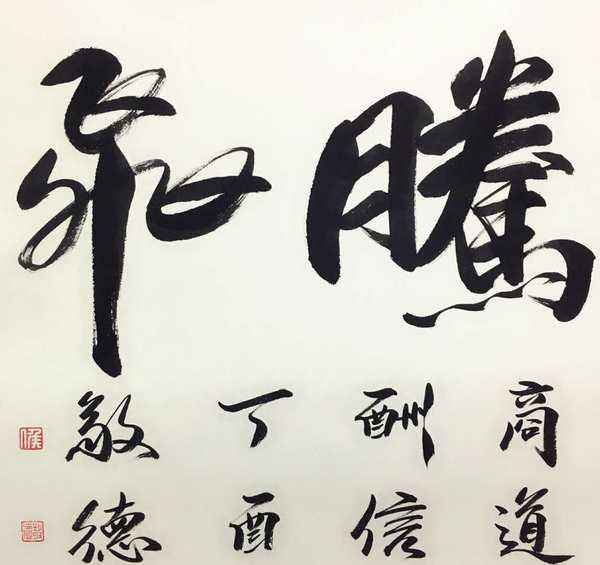 騰飛
商道
酬信
丁酉
敬德
侯